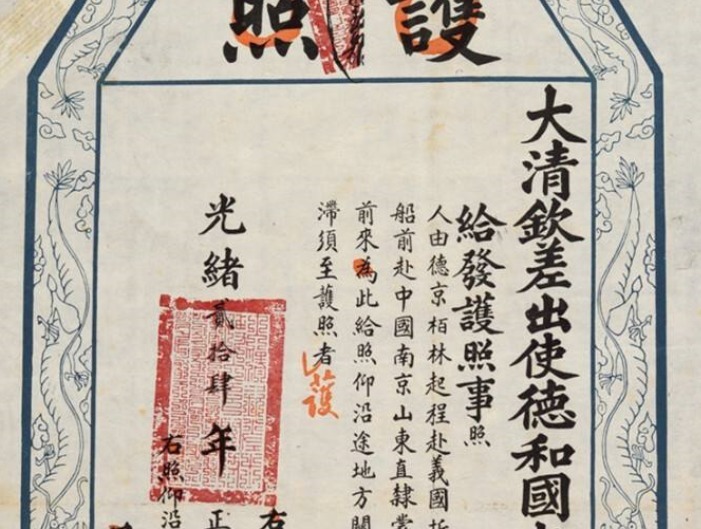 護照
大清欽差出使德和國
給發護照事照
人由德京栢林起程赴義國
船前赴中國南京山東直隸
前來為此給照仰沿途地方
滯須至護照者
護
光緒貳拾肆年正
右照仰沿
右